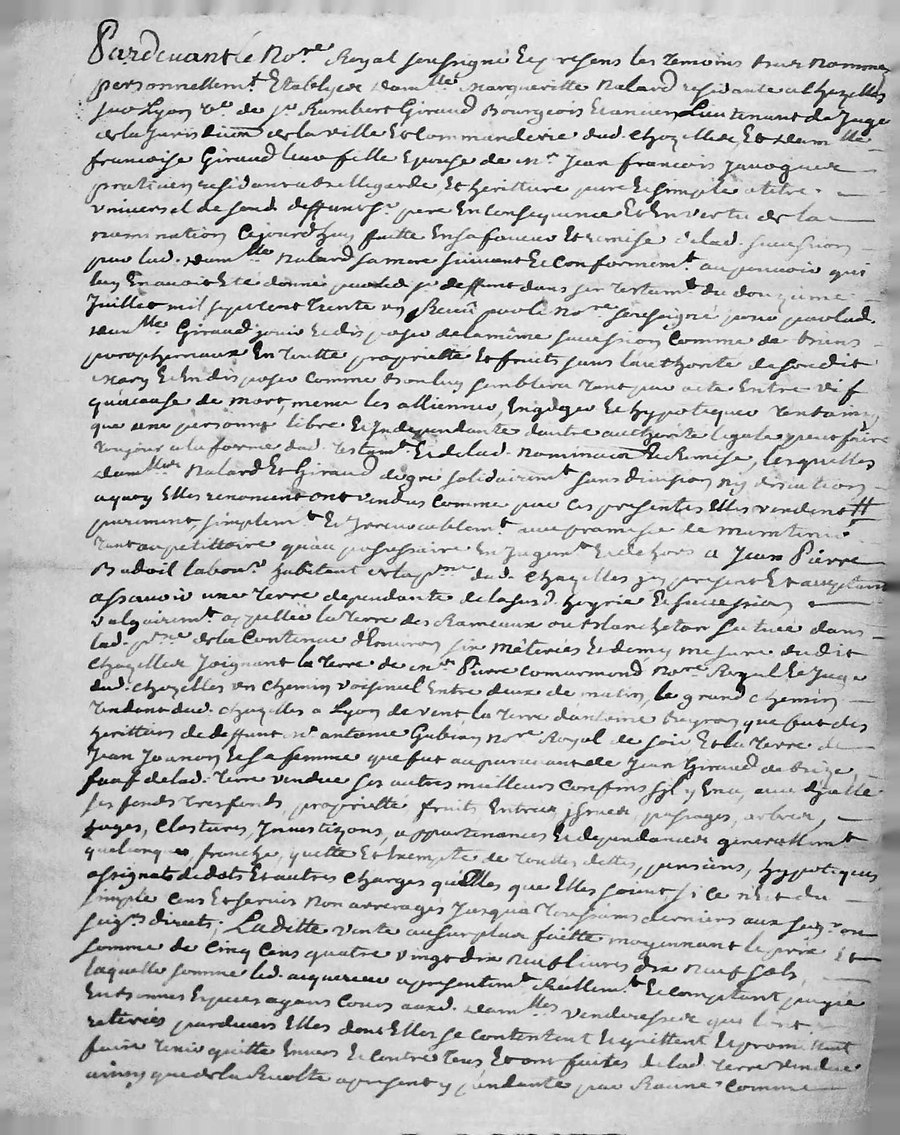 Pardevant le No.re Royal soussigné Et presens les Temoins bas Nommez
personnellem.t Etablyes dam.lle Margueritte Nalard residante a Chazelles
sur Lyon v.e de s.r Rambert Giraud Bourgeois Et ancien Lieutenant de Juge
de la Jurisdi.on de la ville Et Commanderie dud Chazelles, Et dam.lle
francoise Giraud leur fille Epouse de m.r Jean francois Javogues
praticien residant a bellegarde Et heritiere pure Et simple a titre
universel de feud. deffunt s.r pere En Consequence Et En vertu de la
nomination Cejourd'huy faitte En sa faveur Et remise de lad. succession
par lad. dam.lle Nalard sa mere suivant Et Conformem.t au pouvoir qui
luy En avoit Eté donné par led s.r deffunt dans son Testam.t du douzieme
Juillet mil sept cent Trente un Receu par le No.re soussigné pour par lad.
dam.lle Giraud jouir Et disposer de la même succession Comme de biens
paraphernaux En Toutte proprietté Et fruits sans l'authorité de son dit
Mary Et En disposer Comme bon luy semblera Tant par acte Entre vif
qu'a cause de mort, meme les alliener, Engager Et hypotequer Tout ainsy
que une personne libre Et Independante d'autre authorité legale peut faire
Toujour a la forme dud. Testam.t Et de lad. nomination Et Remise, lesquelles
dam.lles Nalard Et Giraud de gré solidairem.t sans division ny discution
a quoy Elles renoncent ont vendus Comme par Ces presentes Elles vendent
purement, simplem.t Et Irrevocablem.t avec promesse de maintenir
Tant au petittoire qu'au possessoire En Jugem.t Et dehors a Jean Pierre
Badoil labour.r habitant de la p.sse dud. Chazelles icy present Et acceptant
assavoir une Terre dependante de la susd. hoyrie Et succession
vulgairem.t appellée la Terre des Rameaux ou Blancheton scituée dans
lad. p.sse de la Contenue d'Environ six Métérées Et demy mesure du dit
Chazelles Joignant la Terre de m.r Pierre Comarmond No.re Royal Et Juge
dud. Chazelles un Chemin voisinal Entre deux de matin, le grand Chemin
Tendant dud. Chazelles a Lyon de vent la Terre d'antoine Peyron que fut des
heritiers de deffunt m.r antoine Gubian No.re Royal de soir Et la Terre de
Jean Joanon Et sa femme que fut auparavant de Jean Giraud de bize,
sauf de lad. Terre vendue ses autres meilleurs Confins s'il y En a, avec d'icelle
ses fonds Tres fonds, proprietté, fruits, Entrées, issues, passages, arbres,
hayes, Clostures, Investizons, appartenances Et dependances generallem.t
quelconques, franche, quitte Et Exempte de Touttes dettes, pensions, hypoteques
assignats de dots Et autres Charges qu'Elles que Elles soient si ce n'est du
simple Cens Et servis non arreragés Jusqu'a Toussaints derniers aux seig.rs ou
seig.rs directs; Laditte vente au surplus faitte moyennant le prix Et
somme de Cinq Cens quatre vingt dix neuf livres dix neuf sols,
laquelle somme led. acquereur a presentem.t Reellem.t Et Comptant payée
En bonnes Especes ayans Cours auxd. dam.lles venderesses que l'ont
retirées pardevers Elles dont Elles se Contentent Et quittent Et promettent
faire Tenir quitte Envers Et Contre Tous Et ont faittes de lad. Terre vendue
ainsy que de la Recolte a present y pendante par Racine, Comme